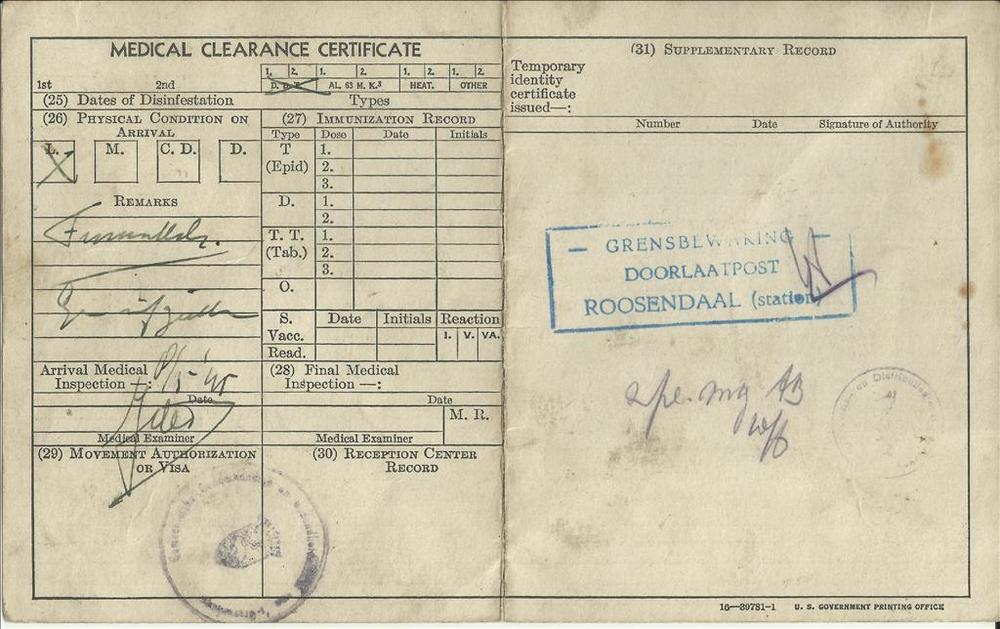 MEDICAL CLEARANCE CERTIFICATE
1. 2. 1. 2. 1. 2. 1. 2.
1st 2nd D. D. T. AL. 63 M. K.³ HEAT. OTHER
(25) Dates of Disinfestation Types
(26) Physical Condition on Arrival
L. M. C. D. D.
Remarks
(27) Immunization Record
Type Dose Date Initials
T (Epid) 1.
2.
3.
D. 1.
2.
T. T. (Tab.) 1.
2.
3.
O.
S. Date Initials Reaction
Vacc. I. V. VA.
Read.
Arrival Medical Inspection —:
Date
Medical Examiner
(28) Final Medical Inspection —:
Date
M. R.
Medical Examiner
(29) Movement Authorization or Visa
(30) Reception Center Record
(31) Supplementary Record
Temporary
identity
certificate
issued—:
Number Date Signature of Authority
— GRENSBEWAKING —
DOORLAATPOST
ROOSENDAAL (station)
16—39781-1 U. S. GOVERNMENT PRINTING OFFICE